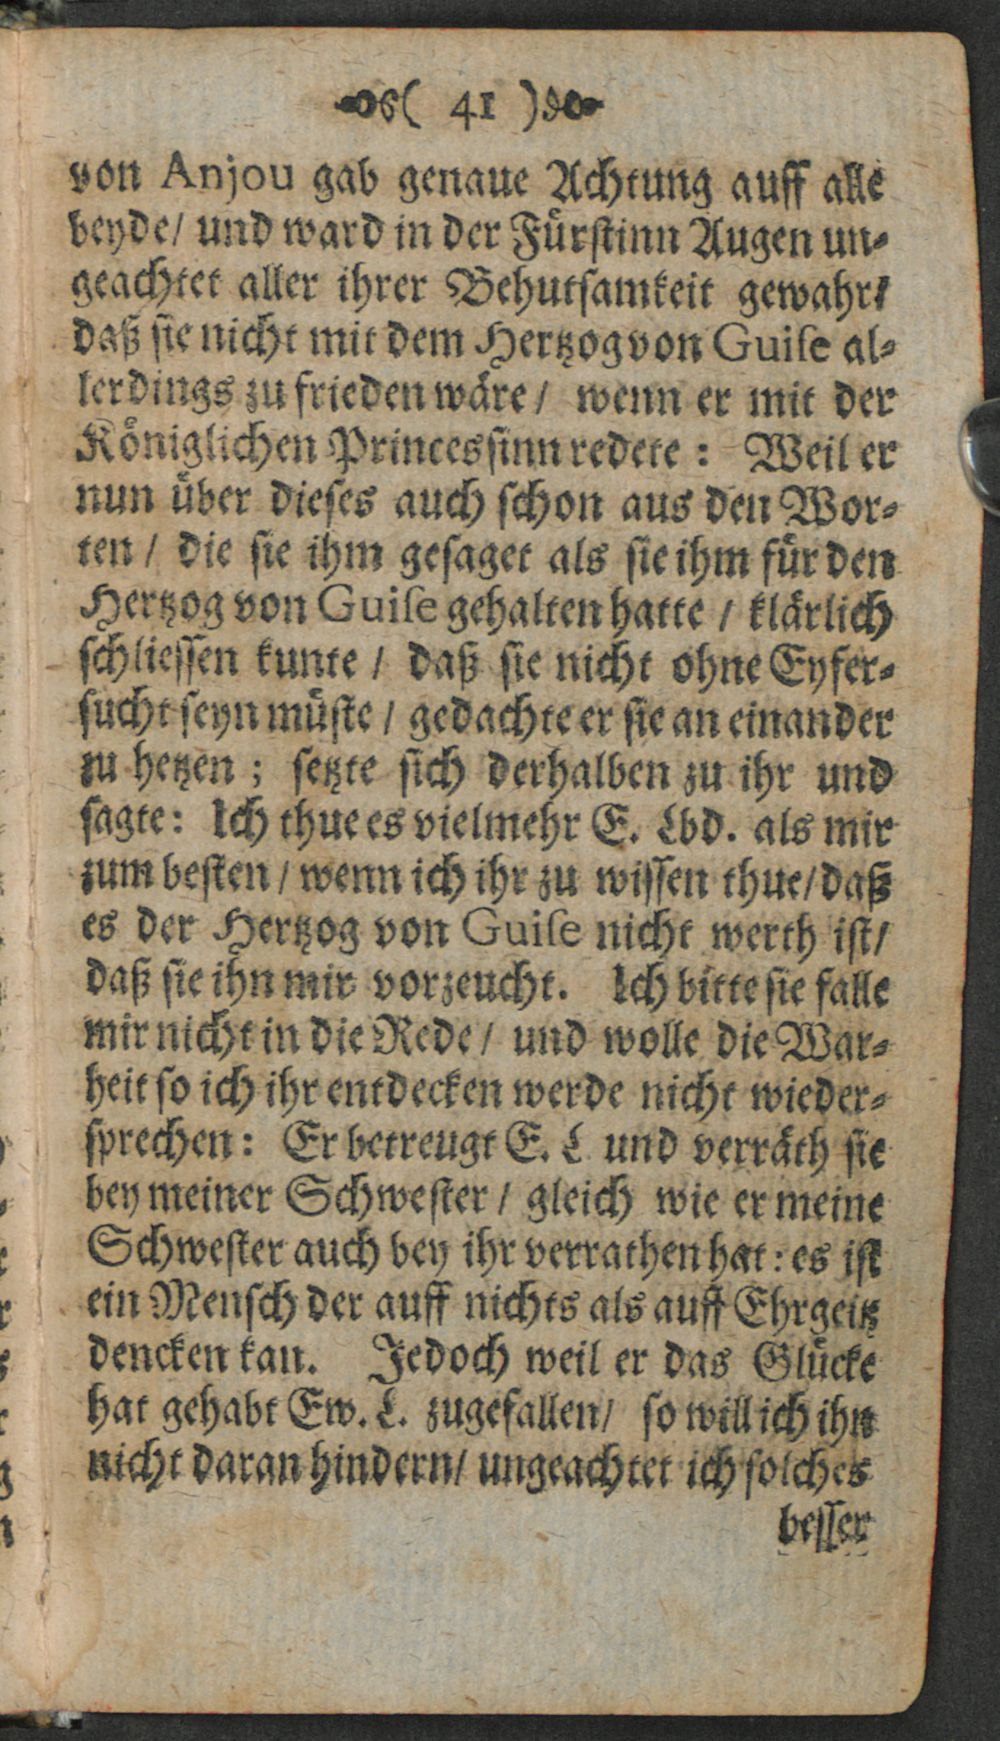 ( 41 )
von Anjou gab genaue Achtung auff alle
beyde/ und ward in der Fürstinn Augen un-
geachtet aller ihrer Behutsamkeit gewahr/
daß sie nicht mit dem Hertzog von Guise al-
lerdings zu frieden wäre / wenn er mit der
Königlichen Princessinn redete : Weil er
nun über dieses auch schon aus den Wor-
ten / die sie ihm gesaget als sie ihm für den
Hertzog von Guise gehalten hatte / klärlich
schliessen kunte / daß sie nicht ohne Eyfer-
sucht seyn müste / gedachte er sie an einander
zu hetzen ; setzte sich derhalben zu ihr und
sagte: Ich thue es vielmehr E. Lbd. als mir
zum besten / wenn ich ihr zu wissen thue/ daß
es der Hertzog von Guise nicht werth ist/
daß sie ihn mir vorzeucht. Ich bitte sie falle
mir nicht in die Rede / und wolle die War-
heit so ich ihr entdecken werde nicht wieder-
sprechen: Er betreugt E. L und verräth sie
bey meiner Schwester / gleich wie er meine
Schwester auch bey ihr verrathen hat : es ist
ein Mensch der auff nichts als auff Ehrgeitz
dencken kan. Jedoch weil er das Glücke
hat gehabt Ew. L. zugefallen/ so will ich ihn
nicht daran hindern/ ungeachtet ich solches
besser